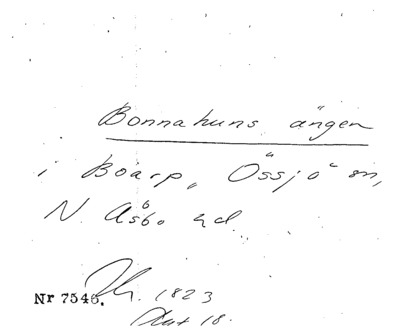 Bonnahuns ängen
i Boarp, Össjö sn,
N. Åsbo hd.
Nr 7546. 1823
18.